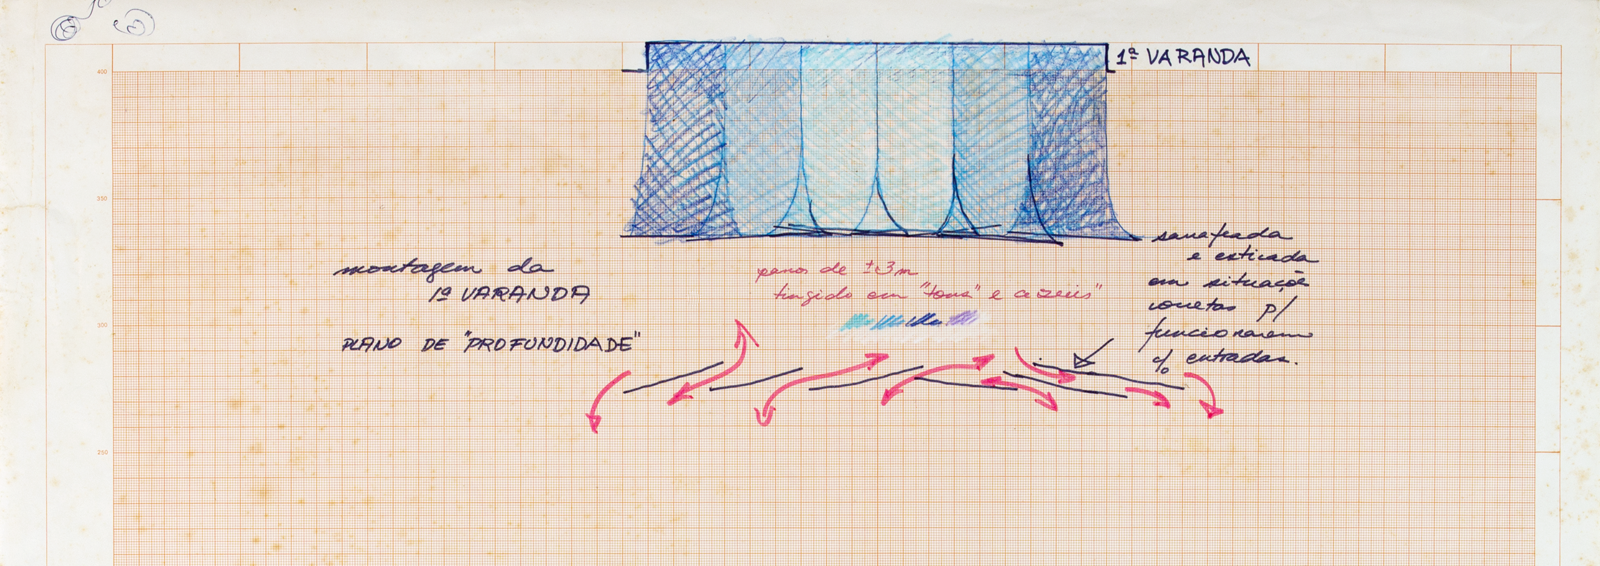 1ª VARANDA
400
350
300
250
montagem da
1ª VARANDA
PLANO DE "PROFUNDIDADE"
panos de ±3m
tingido em "tons" e azuis"
e esticada
em situação
p/
funcionarem
c/ entradas.